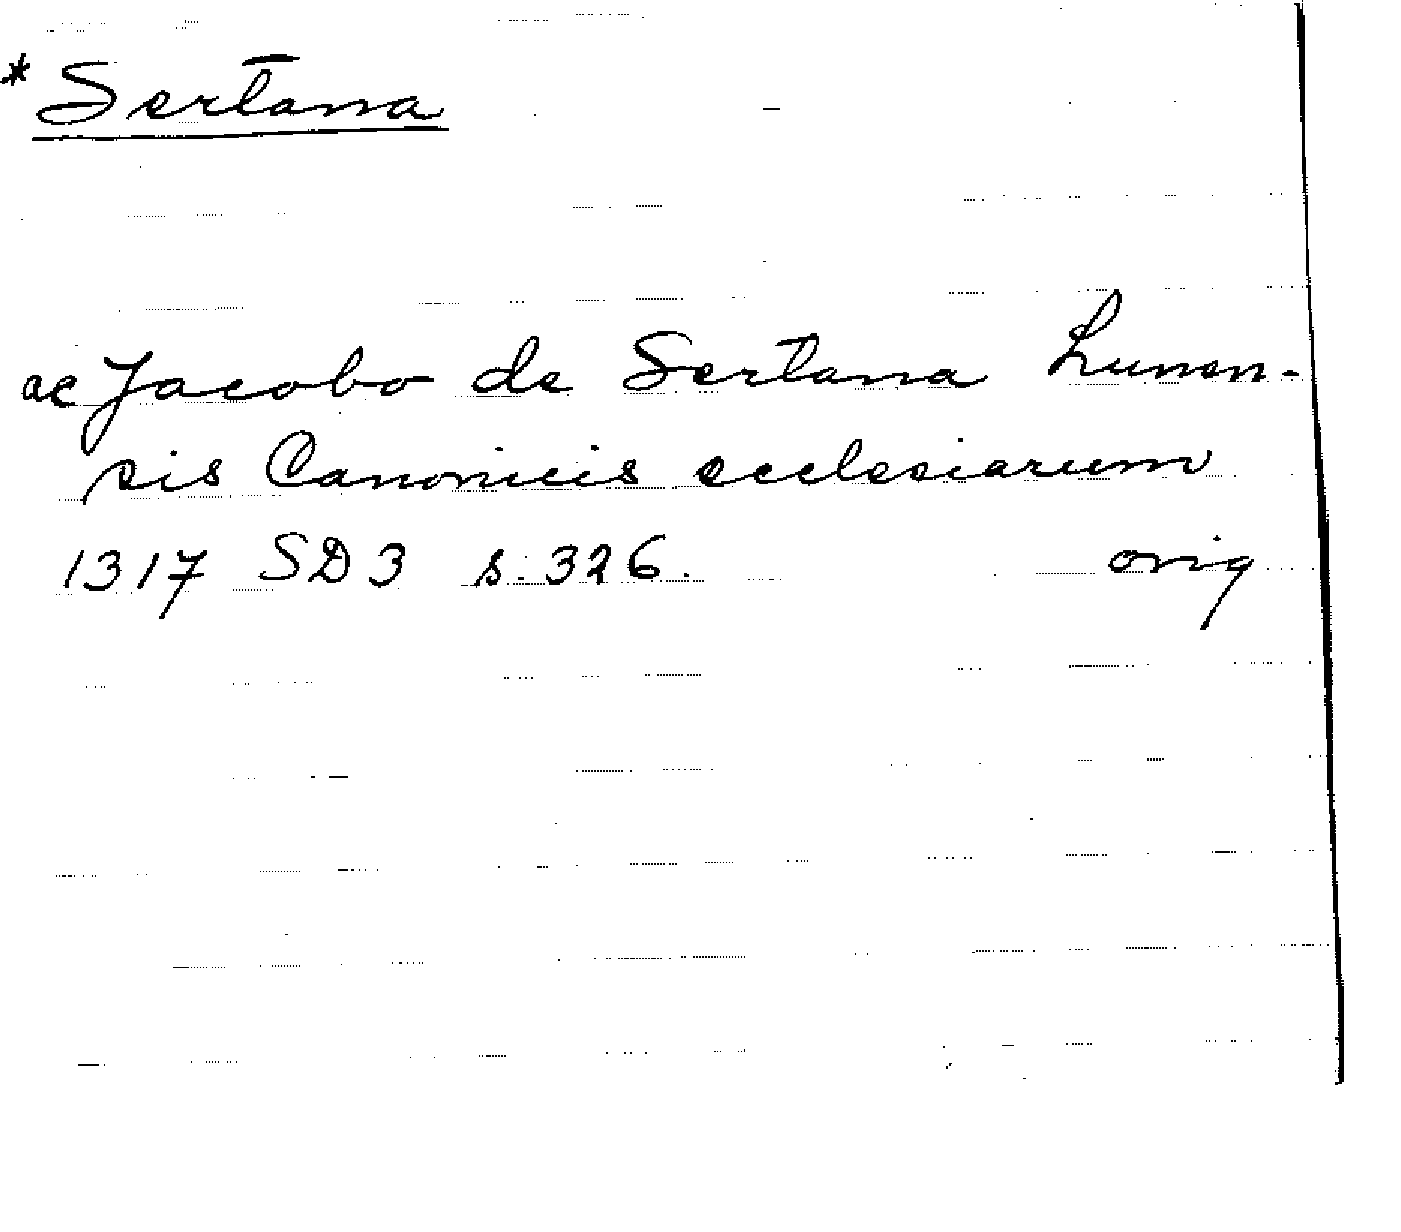 * Sertana
ac Jacobo de Sertana Lunen-
sis Canonicis ecclesiarum
1317 SD3 s. 326. orig